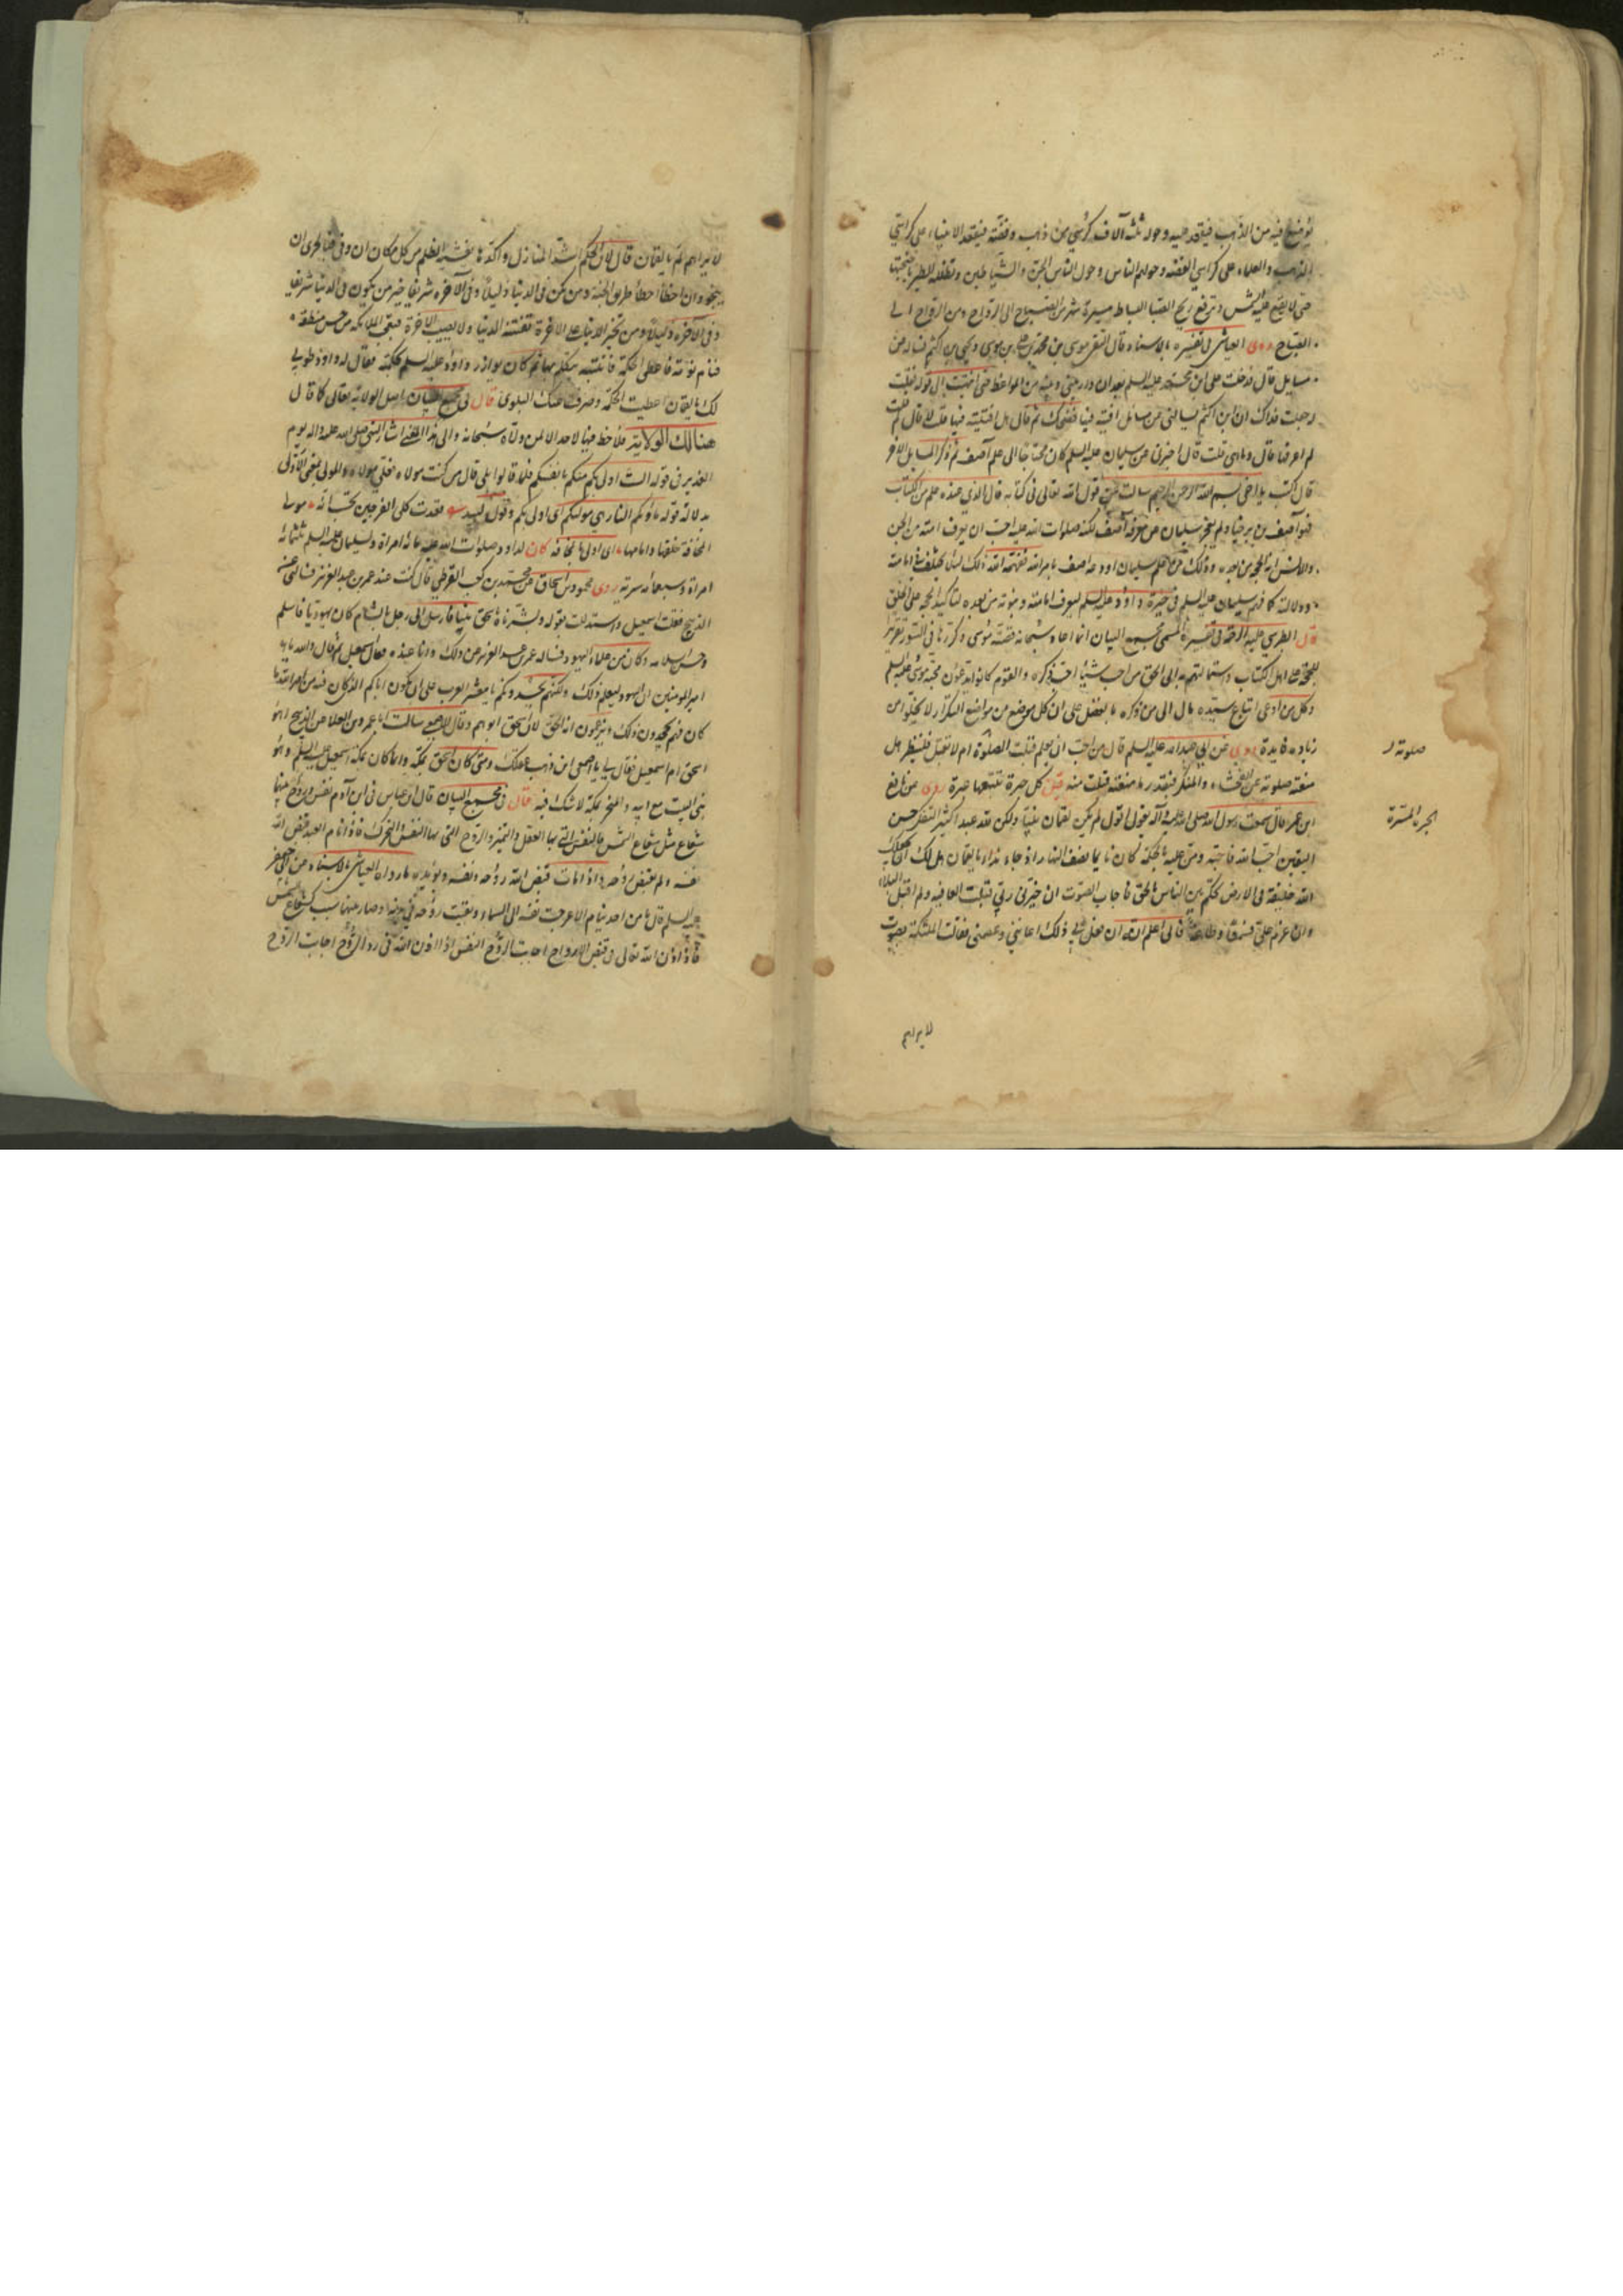 يوضع فيه من الذهب فيقعد عليه وحوله ثلثه آلاف كرسي من ذهب وفضة فيقعد الانبياء على كراسي
الذهب والعلماء على كراسي الفضه وحولهم الناس وحول الناس الجن والشياطين وتظله الطير باجنحتها
حتى لا يقع عليه الشمس وترفع ريح الصبا البساط مسيرة شهر من الصباح الى الرواح ومن الرواح الى
الصباح روى العياشي في تفسيره بالاسناد قال التقى موسى بن محمد بن علي بن موسى ويحيى بن اكثم فساله عن
مسايل قال فدخلت على اخي علي بن محمد عليه السلم بعد ان دار بيني وبينه من المواعظ حتى انتهيت الى قوله فقلت
جعلت فداك ان ابن اكثم يسالني عن مسائل افتيه فيها فضحك ثم قال هل افتيته فيها قلت لا قال لم قلت
لم اعرفها قال وما هي قلت قال اخبرني عن سليمان عليه السلم كان محتاجا الى علم آصف ثم ذكر المسايل الاخر
قال اكتب يا اخي بسم الله الرحمن الرحيم سالت عن قول الله تعالى في كتابه قال الذي عنده علم من الكتاب
فهو آصف بن برخيا ولم يعجز سليمان عن معرفة آصف لكنه صلوات الله عليه احب ان يعرف امته من الجن
والانس انه الحجة من بعده وذلك من علم سليمان اودعه اصف بامر الله ففهمه الله ذلك لئلا يختلف في امامته
ودلالته كما فهم سليمان عليه السلم في حيوة داود عليه السلم ليعرف امامته ونبوته من بعده لتاكيد الحجة على الخلق
قال الطبرسي عليه الرحمة في تفسيره المسمى بمجمع البيان انما اعاد سبحانه قصة موسى وكررها في السور تقريرا
للحجة على اهل الكتاب واستمالتهم به الى الحق من احب شيئا احب ذكره والقوم كانوا يدعون محبة موسى عليه السلم
وكل من ادعى اتباع سيده مال الى من ذكره بالفضل على ان كل موضع من مواضع التكرار لا يخلوا من
زياده فايدة روى عن ابي عبد الله عليه السلم قال من احب ان يعلم قبلت الصلوة ام لم تقبل فلينظر هل
منعته صلوته عن الفحشاء والمنكر فبقدر ما منعته قبلت منه قيل كل حبرة تتبعها عبرة روى عن نافع
ابن عمر قال سمعت رسول الله صلى الله عليه وآله يقول اقول لم يكن لقمان نبيا ولكن كان عبدا كثير التفكر حسن
اليقين احب الله فاحبه ومن عليه بالحكمة كان نايما نصف النهار اذ جاءه نداء يا لقمان هل لك ان يجعلك
الله خليفة في الارض تحكم بين الناس بالحق فاجاب الصوت ان خيرني ربي قبلت العافيه ولم اقبل البلاء
وان عزم علي فسمعا وطاعة فاني اعلم انه ان فعل بي ذلك اعانني وعصمني فقالت الملئكة بصوت
لا يراهم
صلوته
الحبرة المسرة
لا يراهم لم يا لقمان قال لان الحكم اشد المنازل وآكدها يغشيه الظلم من كل مكان ان وفى فبالحرى ان
ينجو وان اخطأ اخطأ طريق الجنة ومن يكن في الدنيا ذليلا وفي الآخره شريفا خير من يكون في الدنيا شريفا
وفي الآخره ذليلا ومن تخير الدنيا على الاخرة تفتنه الدنيا ولا يصيب الاخرة فتعجب الملائكه من حسن منطقه
فنام نومة فاعطى الحكمة فانتبه يتكلم بها ثم كان يوازر داود عليه السلم بحكمته فقال له داود طوبى
لك يا لقمان اعطيت الحكمة وصرف عنك البلوى قال في مجمع البيان اصل الولاية لله تعالى كما قال
هنالك الولاية فلا حظ فيها لاحد الا لمن ولاه سبحانه والى هذا المعنى اشار النبي صلى الله عليه واله يوم
الغدير في قوله الست اولى بكم منكم بانفسكم فلما قالوا بلى قال من كنت مولاه فعلي مولاه والمولى بمعنى الاولى
بدلالة قوله ماويكم النار هي موليكم اي اولى بكم وقول لبيد فغدت كلى الفرجين تحسب انه مولى
المخافة خلفها وامامها اي اولى بالمخافه كان لداود صلوات الله عليه مائة امراة ولسليمان عليه السلم ثلثمائة
امراة وسبعمائه سرية روى محمد بن اسحاق عن محمد بن كعب القرظي قال كنت عند عمر بن عبد العزيز فسالني عن
الذبيح فقلت اسمعيل واستدللت بقوله وبشرناه باسحق نبيا فارسل الى رجل بالشام كان يهوديا فاسلم
وحسن اسلامه وكان من علماء اليهود فساله عمر بن عبد العزيز عن ذلك وانا عنده فقال اسمعيل ثم قال والله يا
امير المومنين ان اليهود ليعلم ذلك ولكنهم يحسدونكم يا معشر العرب على ان يكون اباكم الذي كان فيه من امر الله ما
كان فهم يجحدون ذلك ويزعمون انه اسحق لان اسحق ابوهم وقال الاصمعي سالت ابا عمرو بن العلا عن الذبيح اهو
اسحق ام اسمعيل فقال لي يا اصمعي اين ذهب عقلك ومتى كان اسحق بمكة وانما كان بمكة اسمعيل عليه السلم وهو
بنى البيت مع ابيه والمنحر بمكة لا شك فيه قال في مجمع البيان قال ابن عباس في ابن آدم نفس وروح بينهما
شعاع مثل شعاع الشمس فالنفس التي بها العقل والتميز والروح التي بها النفس والتحرك فاذا نام العبد قبض الله
نفسه ولم يقبض روحه واذا مات قبض الله روحه ونفسه ويؤيده ما رواه العياشي بالاسناد عن ابي جعفر
عليه السلم قال ما من احد ينام الا عرجت نفسه الى السماء وبقيت روحه في بدنه وصار بينهما سبب كشعاع الشمس
فاذا اذن الله تعالى في قبض الارواح اجابت الروح النفس اذا اذن الله في رد الروح اجابت الروح